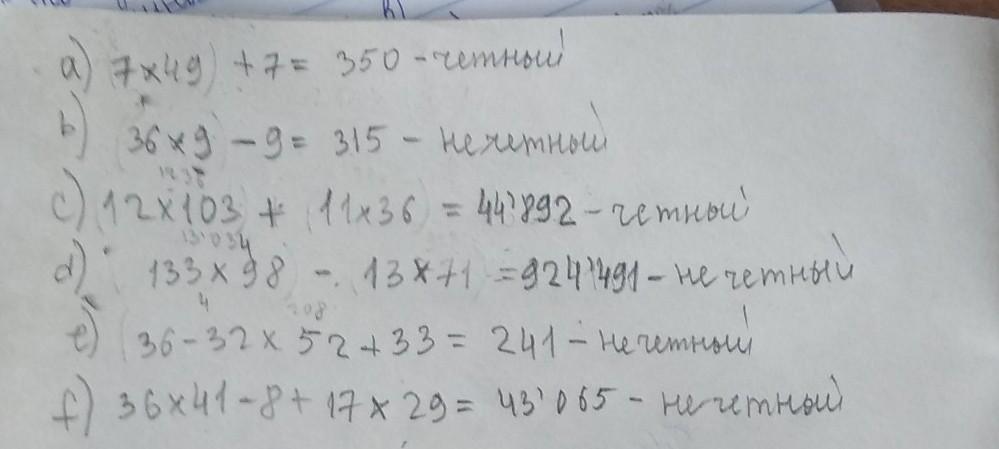 a) 7×49) + 7 = 350 - четный
b) (36×9) - 9 = 315 - нечетный
c) (12×103) + (11×36) = 44'892 - четный
13'034
d) 133×98) - 13×71 = 924'491 - нечетный
4 208
e) (36-32×52+33 = 241 - нечетный
f) 36×41-8+17×29 = 43'065 - нечетный